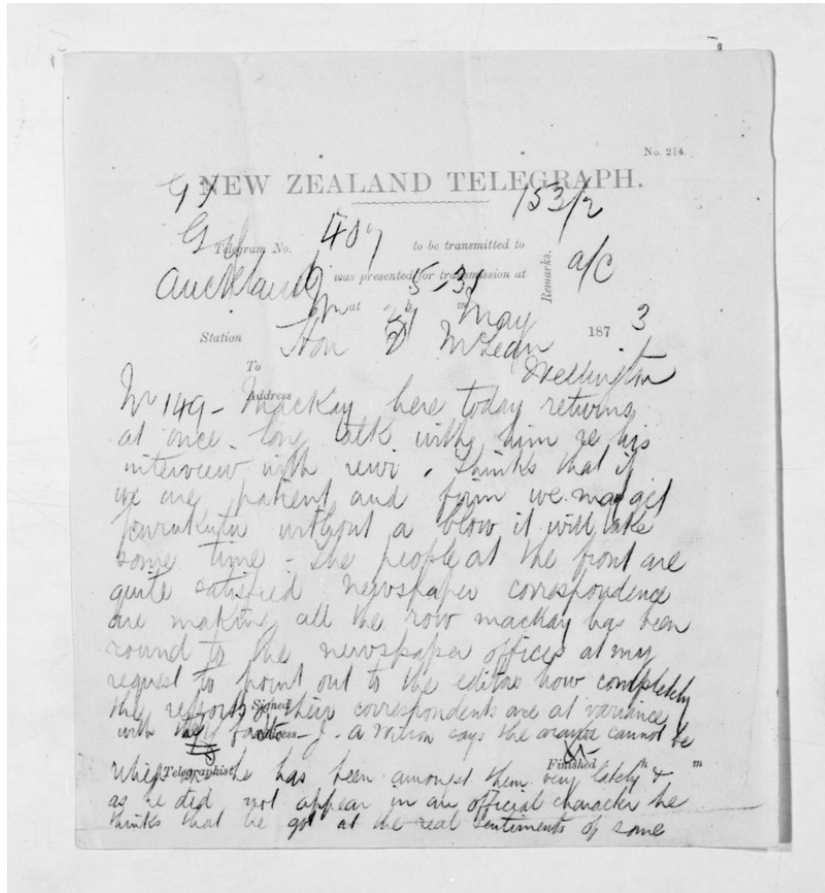 No. 214.
NEW ZEALAND TELEGRAPH.
153/2
Telegram No. 407 to be transmitted to
Auckland was presented for transmission at 5-31
Remarks. a/c
at h m
21 May 187 3
Station
To Hon D McLean
Address Wellington
Nr 149 - Mackay here today returns
at once. long talk with him re his
interview with rewi. Thinks that if
we are patient and firm we may get
purukutu without a blow it will take
some time - The people at the front are
quite satisfied newspaper correspondence
are making all the row mackay has been
round to the newspaper offices at my
request to point out to the editors how completely
the reports of their correspondents are at variance
Signed
with the facts - J. A Wilson says the cannot be
Address
Telegraphist Finished h m
he has been amongst them very lately &
as he did not appear in an official character he
thinks that he got at the real sentiments of some